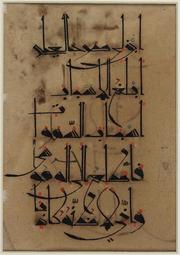 ابن لي صرحا لعلي
ابلغ الاسباب
اسباب السموت
فاطلع الى اله موسى
واني لاظنه كاذبا